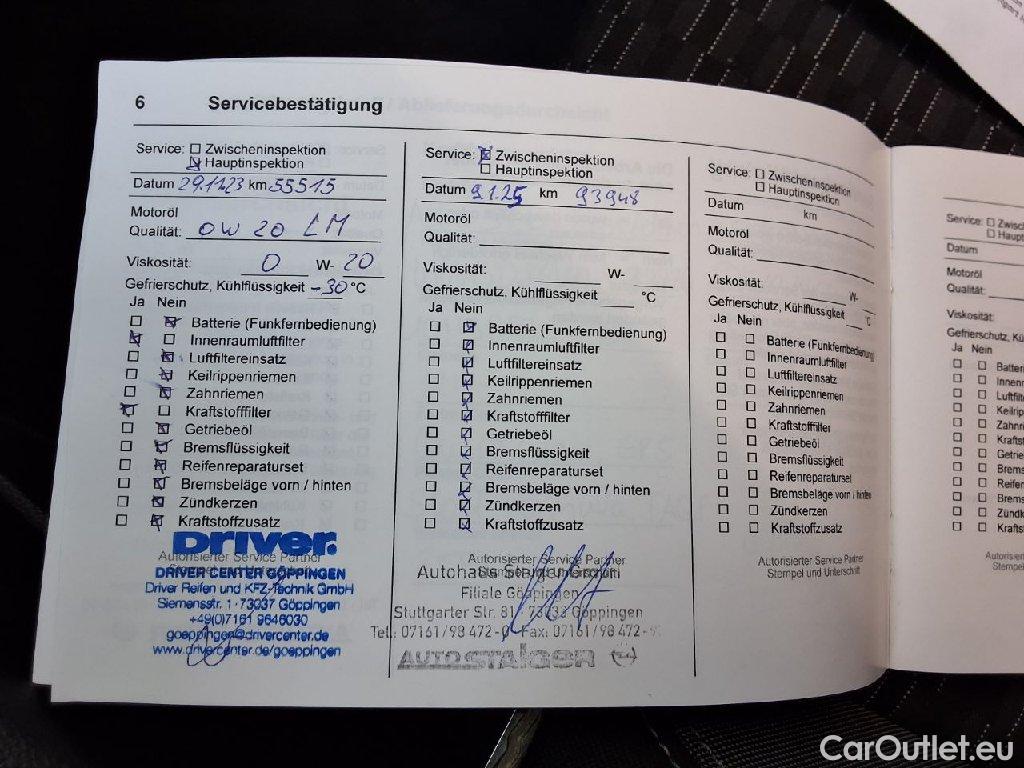 6 Servicebestätigung
Service: Zwischeninspektion
Hauptinspektion
Datum 29.11.23 km 55515
Motoröl
Qualität: 0W20 LM
Viskosität: 0 W- 20
Gefrierschutz, Kühlflüssigkeit -30 °C
Ja Nein
Batterie (Funkfernbedienung)
Innenraumluftfilter
Luftfiltereinsatz
Keilrippenriemen
Zahnriemen
Kraftstofffilter
Getriebeöl
Bremsflüssigkeit
Reifenreparaturset
Bremsbeläge vorn / hinten
Zündkerzen
Kraftstoffzusatz
Autorisierter Service Partner
Stempel und Unterschrift
DRIVER.
DRIVER CENTER GÖPPINGEN
Driver Reifen und KFZ-Technik GmbH
Siemensstr. 1 · 73037 Göppingen
+49(0)7161 9646030
goeppingen@drivercenter.de
www.drivercenter.de/goeppingen
Service: Zwischeninspektion
Hauptinspektion
Datum 9.1.25 km 93948
Motoröl
Qualität:
Viskosität: W-
Gefrierschutz, Kühlflüssigkeit °C
Ja Nein
Batterie (Funkfernbedienung)
Innenraumluftfilter
Luftfiltereinsatz
Keilrippenriemen
Zahnriemen
Kraftstofffilter
Getriebeöl
Bremsflüssigkeit
Reifenreparaturset
Bremsbeläge vorn / hinten
Zündkerzen
Kraftstoffzusatz
Autorisierter Service Partner
Stempel und Unterschrift
Autohaus
Filiale Göppingen
Stuttgarter Str. 81 73033 Göppingen
Tel.: 07161/98 472-0 Fax: 07161/98 472-
AUTO STAIGER
Service: Zwischeninspektion
Hauptinspektion
Datum km
Motoröl
Qualität:
Viskosität: W-
Gefrierschutz, Kühlflüssigkeit °C
Ja Nein
Batterie (Funkfernbedienung)
Innenraumluftfilter
Luftfiltereinsatz
Keilrippenriemen
Zahnriemen
Kraftstofffilter
Getriebeöl
Bremsflüssigkeit
Reifenreparaturset
Bremsbeläge vorn / hinten
Zündkerzen
Kraftstoffzusatz
Autorisierter Service Partner
Stempel und Unterschrift
Service: Zwisc
Haupt
Datum
Motoröl
Qualität:
Viskosität:
Gefrierschutz, Kü
Ja Nein
Batter
Innen
Luftfil
Keilri
Zahnr
Kraft
Getrie
Brems
Reifen
Brems
Zündk
Krafts
Autorisi
Stem
CarOutlet.eu